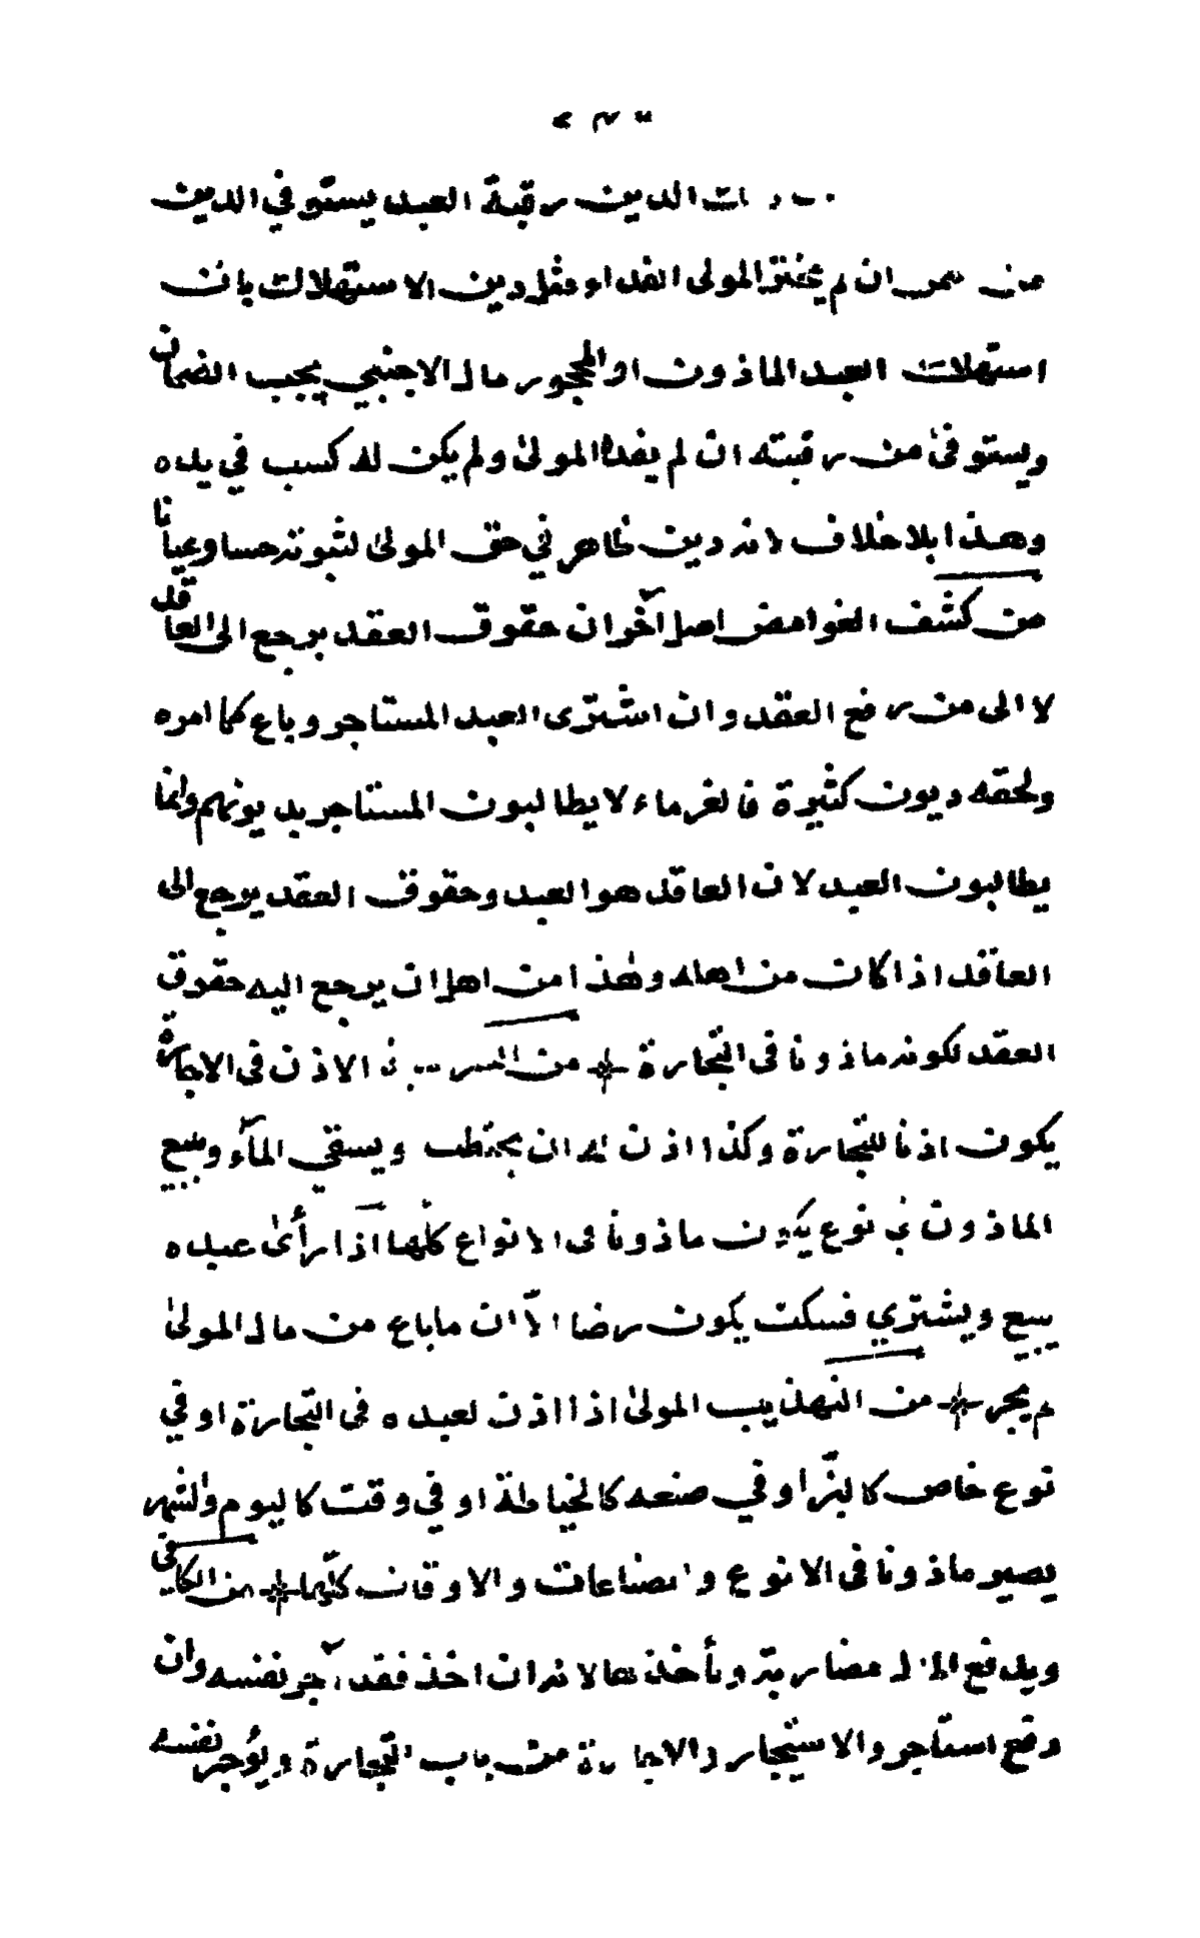 الدين رقبة العبد يستوفي الدين
من ان لم يختر المولى الفداء ومثل دين الاستهلاك بان
استهلك العبد الماذون او المحجور مال الاجنبي يجب الضمان
ويستوفىٰ من رقبته ان لم يفده المولىٰ ولم يكن له كسب في يده
وهذا بلا خلاف لانه دين ظاهر في حق المولىٰ لثبوته حسا وعيانا
من كشف الغوامض اصل آخر ان حقوق العقد يرجع الى العاقد
لا الى من رفع العقد وان اشترى العبد المستاجر وباع كما امره
ولحقه ديون كثيرة فالغرماء لا يطالبون المستاجر بديونهم وانما
يطالبون العبد لان العاقد هو العبد وحقوق العقد يرجع الى
العاقد اذا كان من اهله وهٰذا من اهل ان يرجع اليه حقوق
العقد لكونه ماذونا فى التجارة من الاذن فى الاجارة
يكون اذنا للتجارة وكذا اذن له ان يحتطب ويسقي المآء وبيع
الماذون في نوع يكون ماذونا فى الانواع كلها اذا رأىٰ عبده
يبيع ويشتري فسكت يكون رضا الّا ان ما باع من مال المولىٰ
لم يجر من التهذيب المولىٰ اذا اذن لعبده فى التجارة او في
نوع خاص كالبزّ او في صنعه كالخياطة او في وقت كاليوم والشهر
يصير ماذونا فى الانوع والصناعات والاوقات كلّها من الكافي
ويدفع المال مضاربة ويأخذها لانه ان اخذ فقد آجر نفسه وان
دفع استأجر والاستيجار والاجارة من باب التجارة ويؤجر نفسه